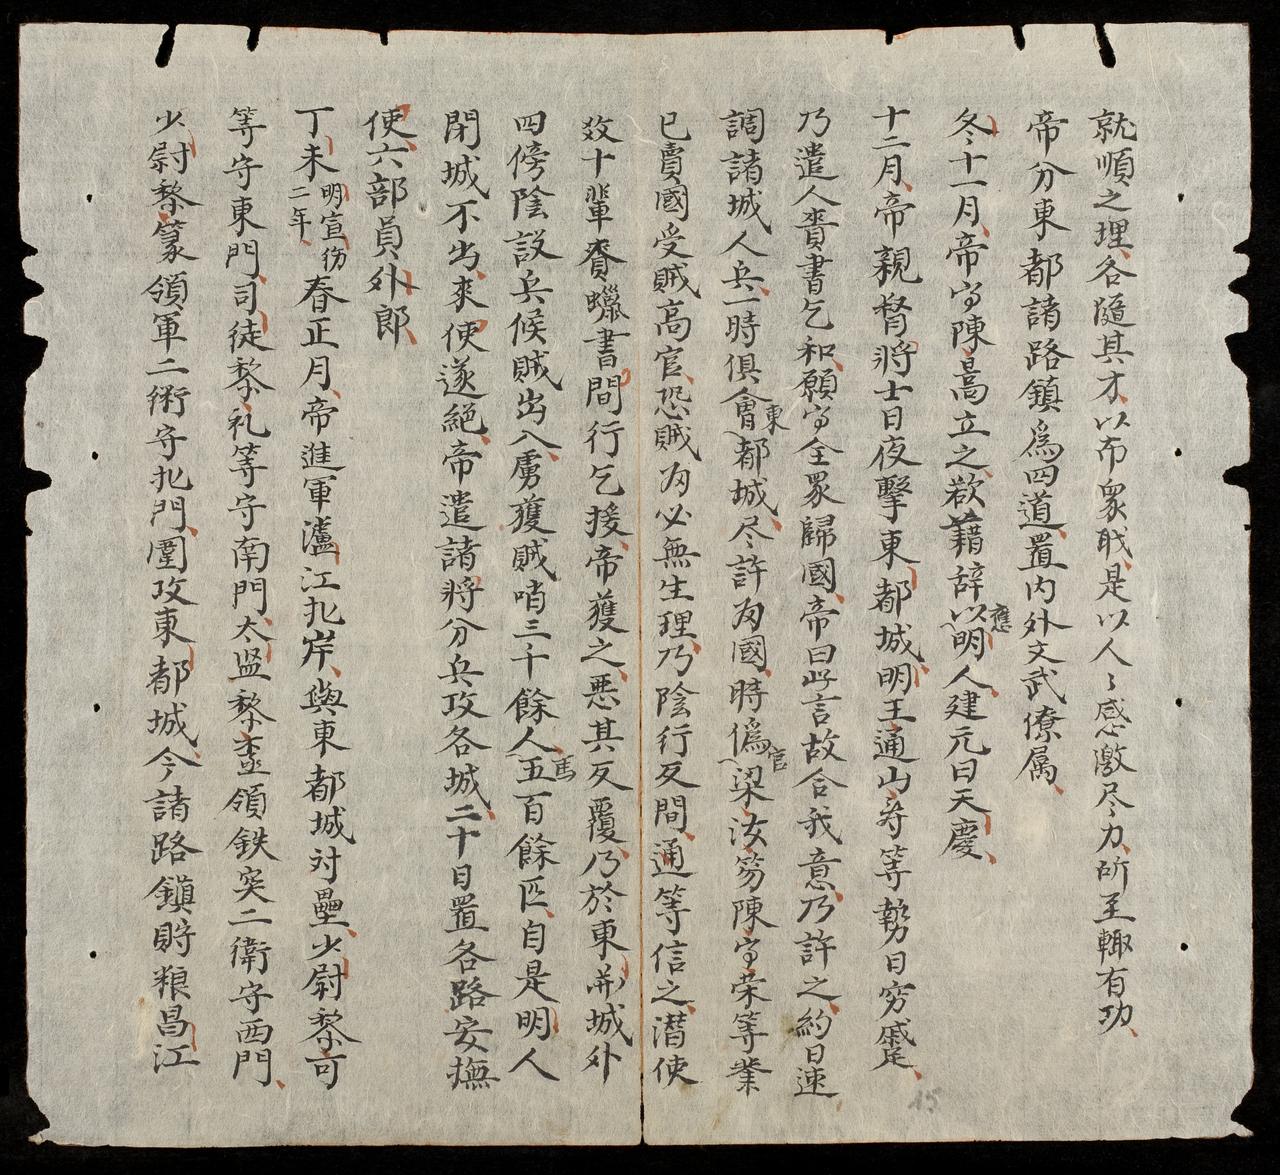 就順之理各隨其才以布眾職是以人〻感激尽力所至輙有功
帝分東都諸路鎮為四道置内外文武僚属
冬十一月帝得陳暠立之欲藉辞以應明人建元曰天慶
十二月帝親督將士日夜擊東都城明王通山壽等勢日窮蹙
乃遣人賫書乞和願得全眾歸國帝曰此言故合我意乃許之約日速
調諸城人兵一時俱會東都城尽許为國時偽官梁汝笏陳得荣等業
已賣國受賊高官恐賊为必無生理乃陰行反間通等信之潜使
效十輩賫蠟書間行乞援帝獲之悪其反覆乃於東都城外
四傍陰設兵候賊出入虜獲賊哨三千餘人馬五百餘匹自是明人
閉城不出來使遂絶帝遣諸將分兵攻各城二十日置各路安撫
使六部員外郎
丁未明宣徳二年春正月帝進軍瀘江北岸與東都城対壘少尉黎可
等守東門司徒黎礼等守南門太监黎 領鉄突二衛守西門
少尉黎篆領軍二衛守北門圍攻東都城令諸路鎮貯粮昌江